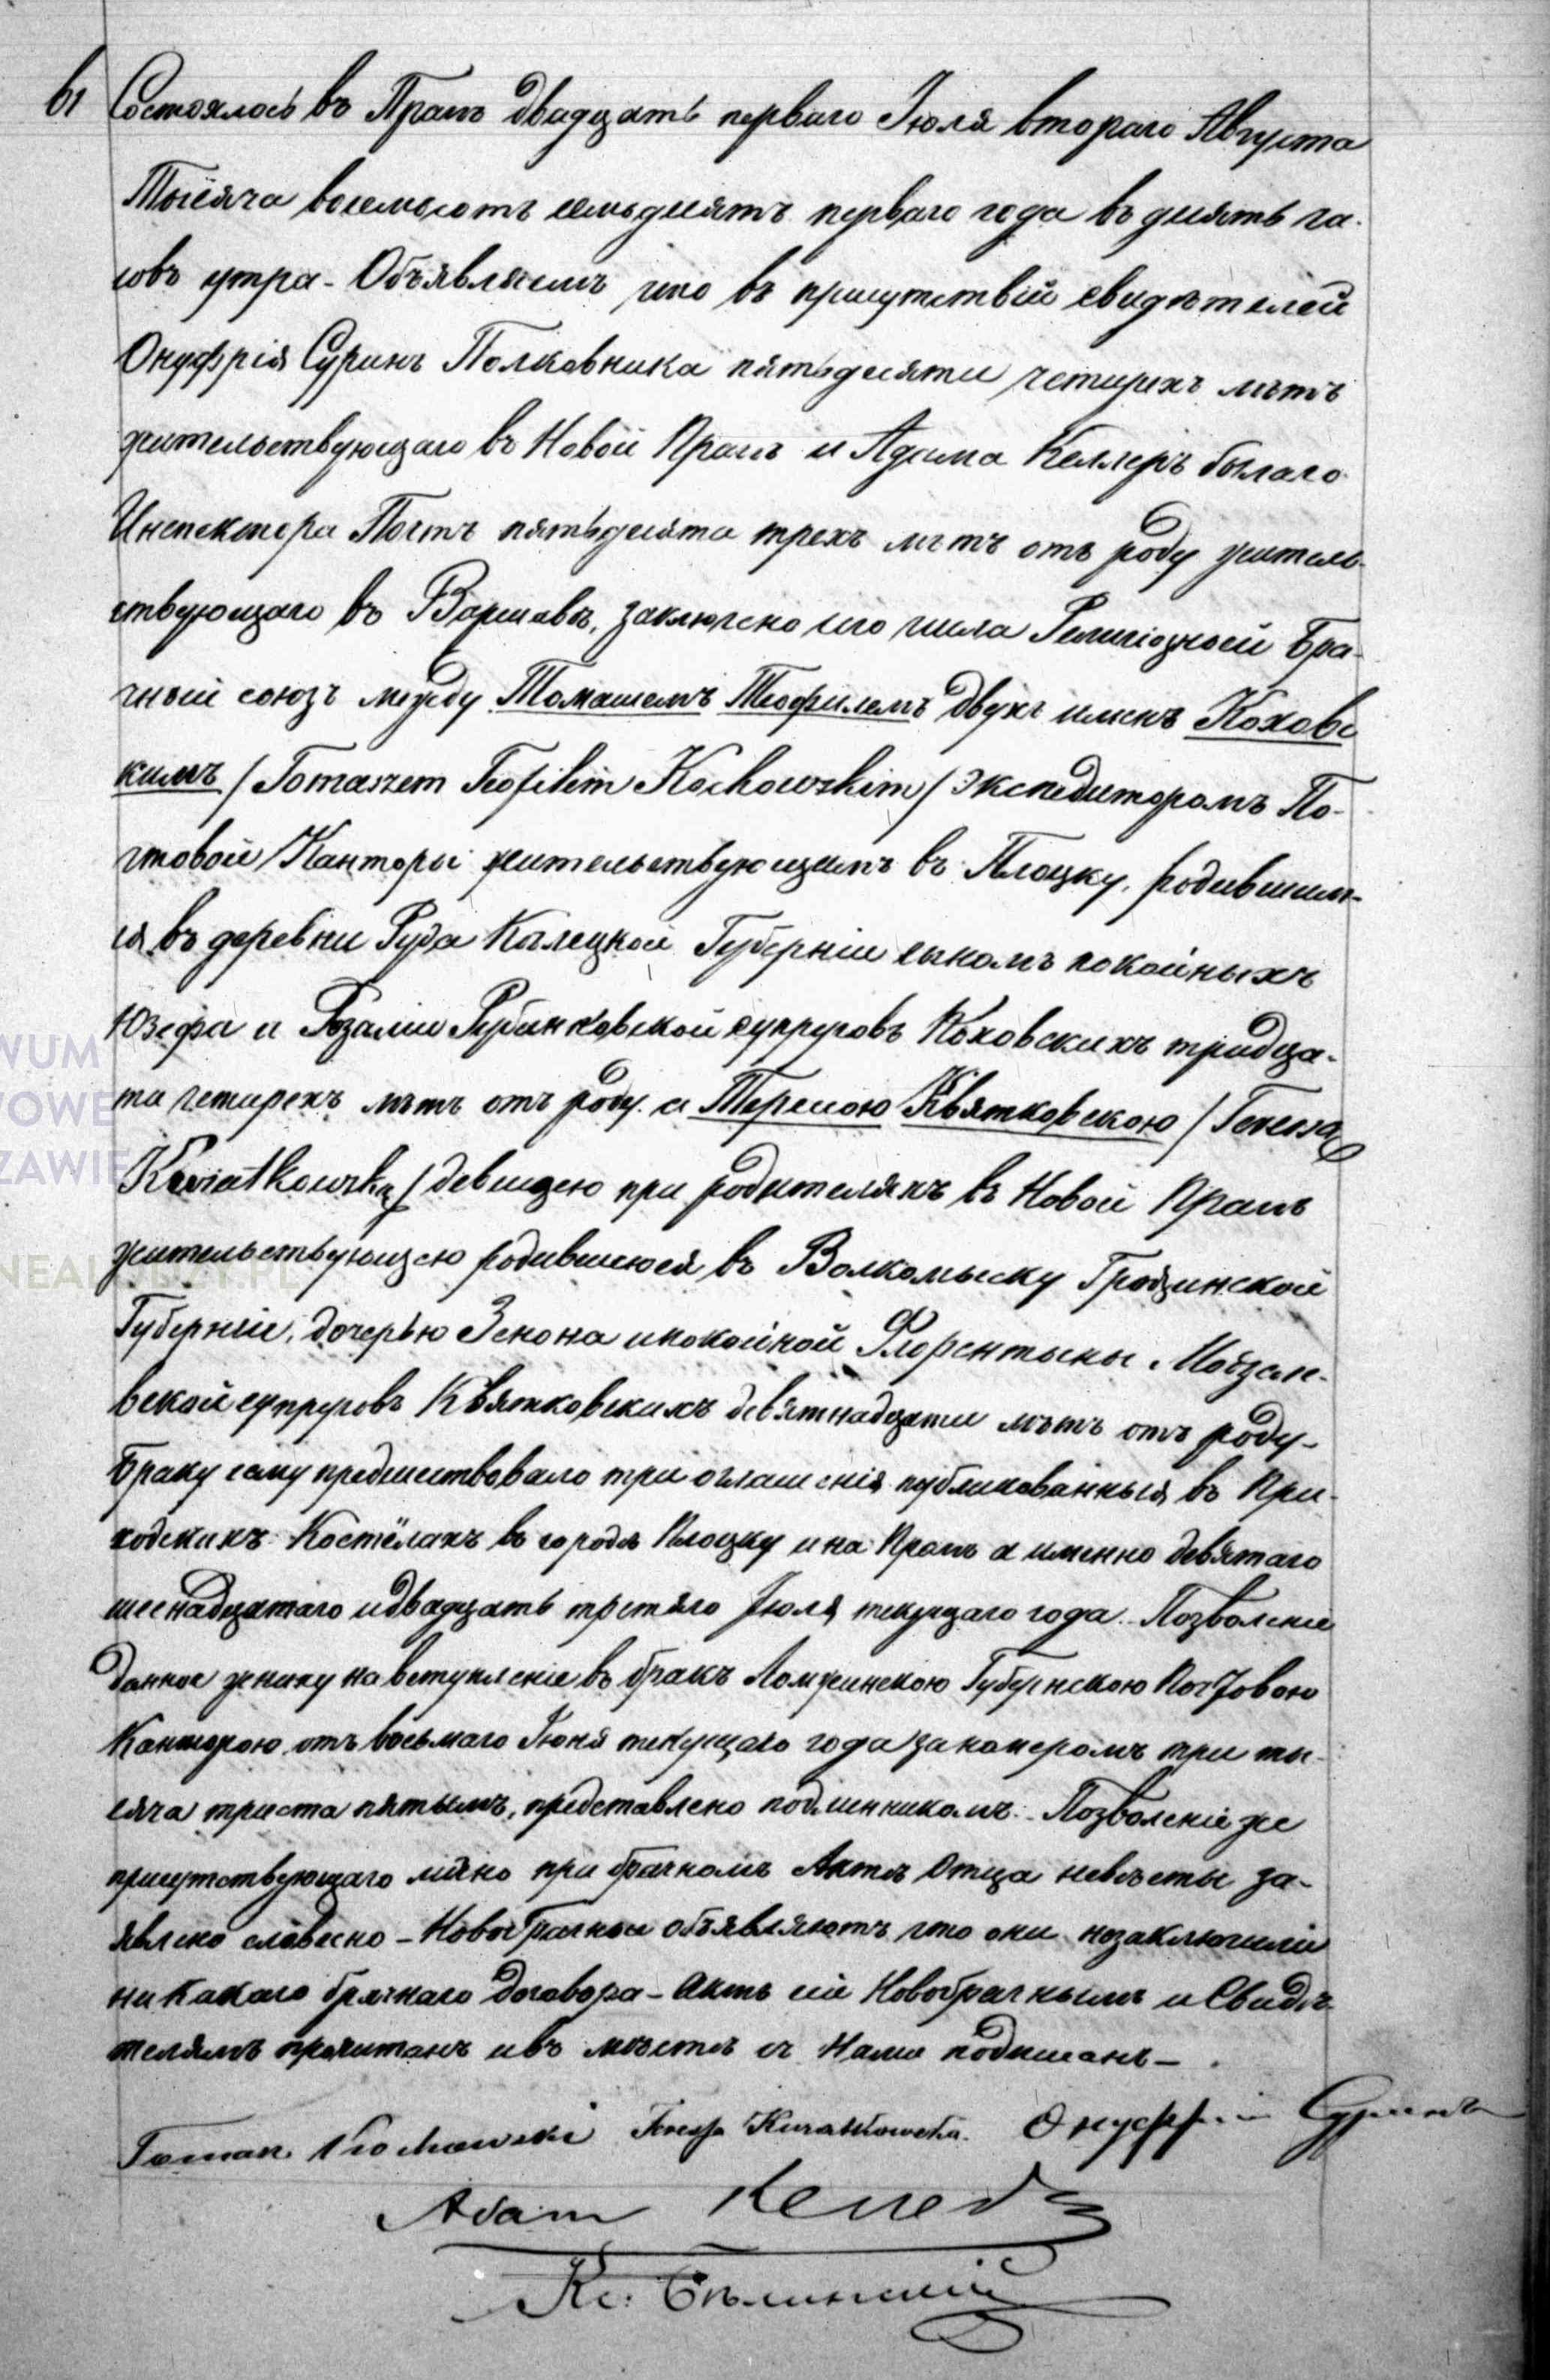 61 Состоялось въ Прагѣ двадцать перваго Іюля втораго Августа
Тысяча восемьсотъ семьдесятъ перваго года въ десять ча-
совъ утра - Объявляемъ что въ присутствіи свидѣтелей
Онуфрія Суринъ Полковника пятьдесяти четирехъ лѣтъ
жительствующаго въ Новой Прагѣ и Адама Келлеръ бывшаго
Инспектора Почтъ пятьдесяти трехъ лѣтъ отъ роду житель-
ствующаго въ Варшавѣ, заключено сего числа Религіозной Бра-
чный союзъ между Томашемъ Теофилемъ двухъ именъ Коховс
кимъ / Tomaszem Teofilem Kochowskim / Экспедиторомъ По-
чтовой Канторы жительствующимъ въ Плоцку, родившим-
ся въ деревни Руда Кѣлецкой Губерніи сыномъ покойныхъ
Юзефа и Розаліи Рубинковской супруговъ Коховскихъ тридца-
ти четирехъ лѣтъ отъ роду. а Тересою Квятковскою / Teressą
Kwiatkowską / девицею при родителяхъ въ Новой Прагѣ
жительствующею родившеюся въ Волкомыску Гродзинской
Губерніи, дочерью Зенона и покойной Флорентыны
вской супруговъ Квятковскихъ девятнадцати лѣтъ отъ роду -
Браку сему предшествовало три оглашенія публикованныя въ При-
ходскихъ Костёлахъ въ городѣ Плоцку и на Прагѣ а именно девятаго
шеснадцатаго и двадцать третяго Іюля текущаго года. Позволеніе
данное жениху на вступленіе въ бракъ Ломжинскою Губернскою Почтовою
Канторою отъ восьмаго Іюня текущаго года за номеромъ три ты-
сяча триста пятымъ, представлено подлинникомъ. Позволеніе же
присутствующаго лично при брачномъ Актѣ Отца невѣсты за-
явлено словесно - Новобрачные объявляютъ что они незаключили
никакаго брачнаго договора - Актъ сій Новобрачнымъ и Свидѣ-
телямъ прочитанъ и въ мѣстѣ съ Нами подписанъ -
Tomasz Kochowski Teresa Kwiatkowska. Онуфрій Суринъ
Adam Keller
Кс. Бѣлинскій